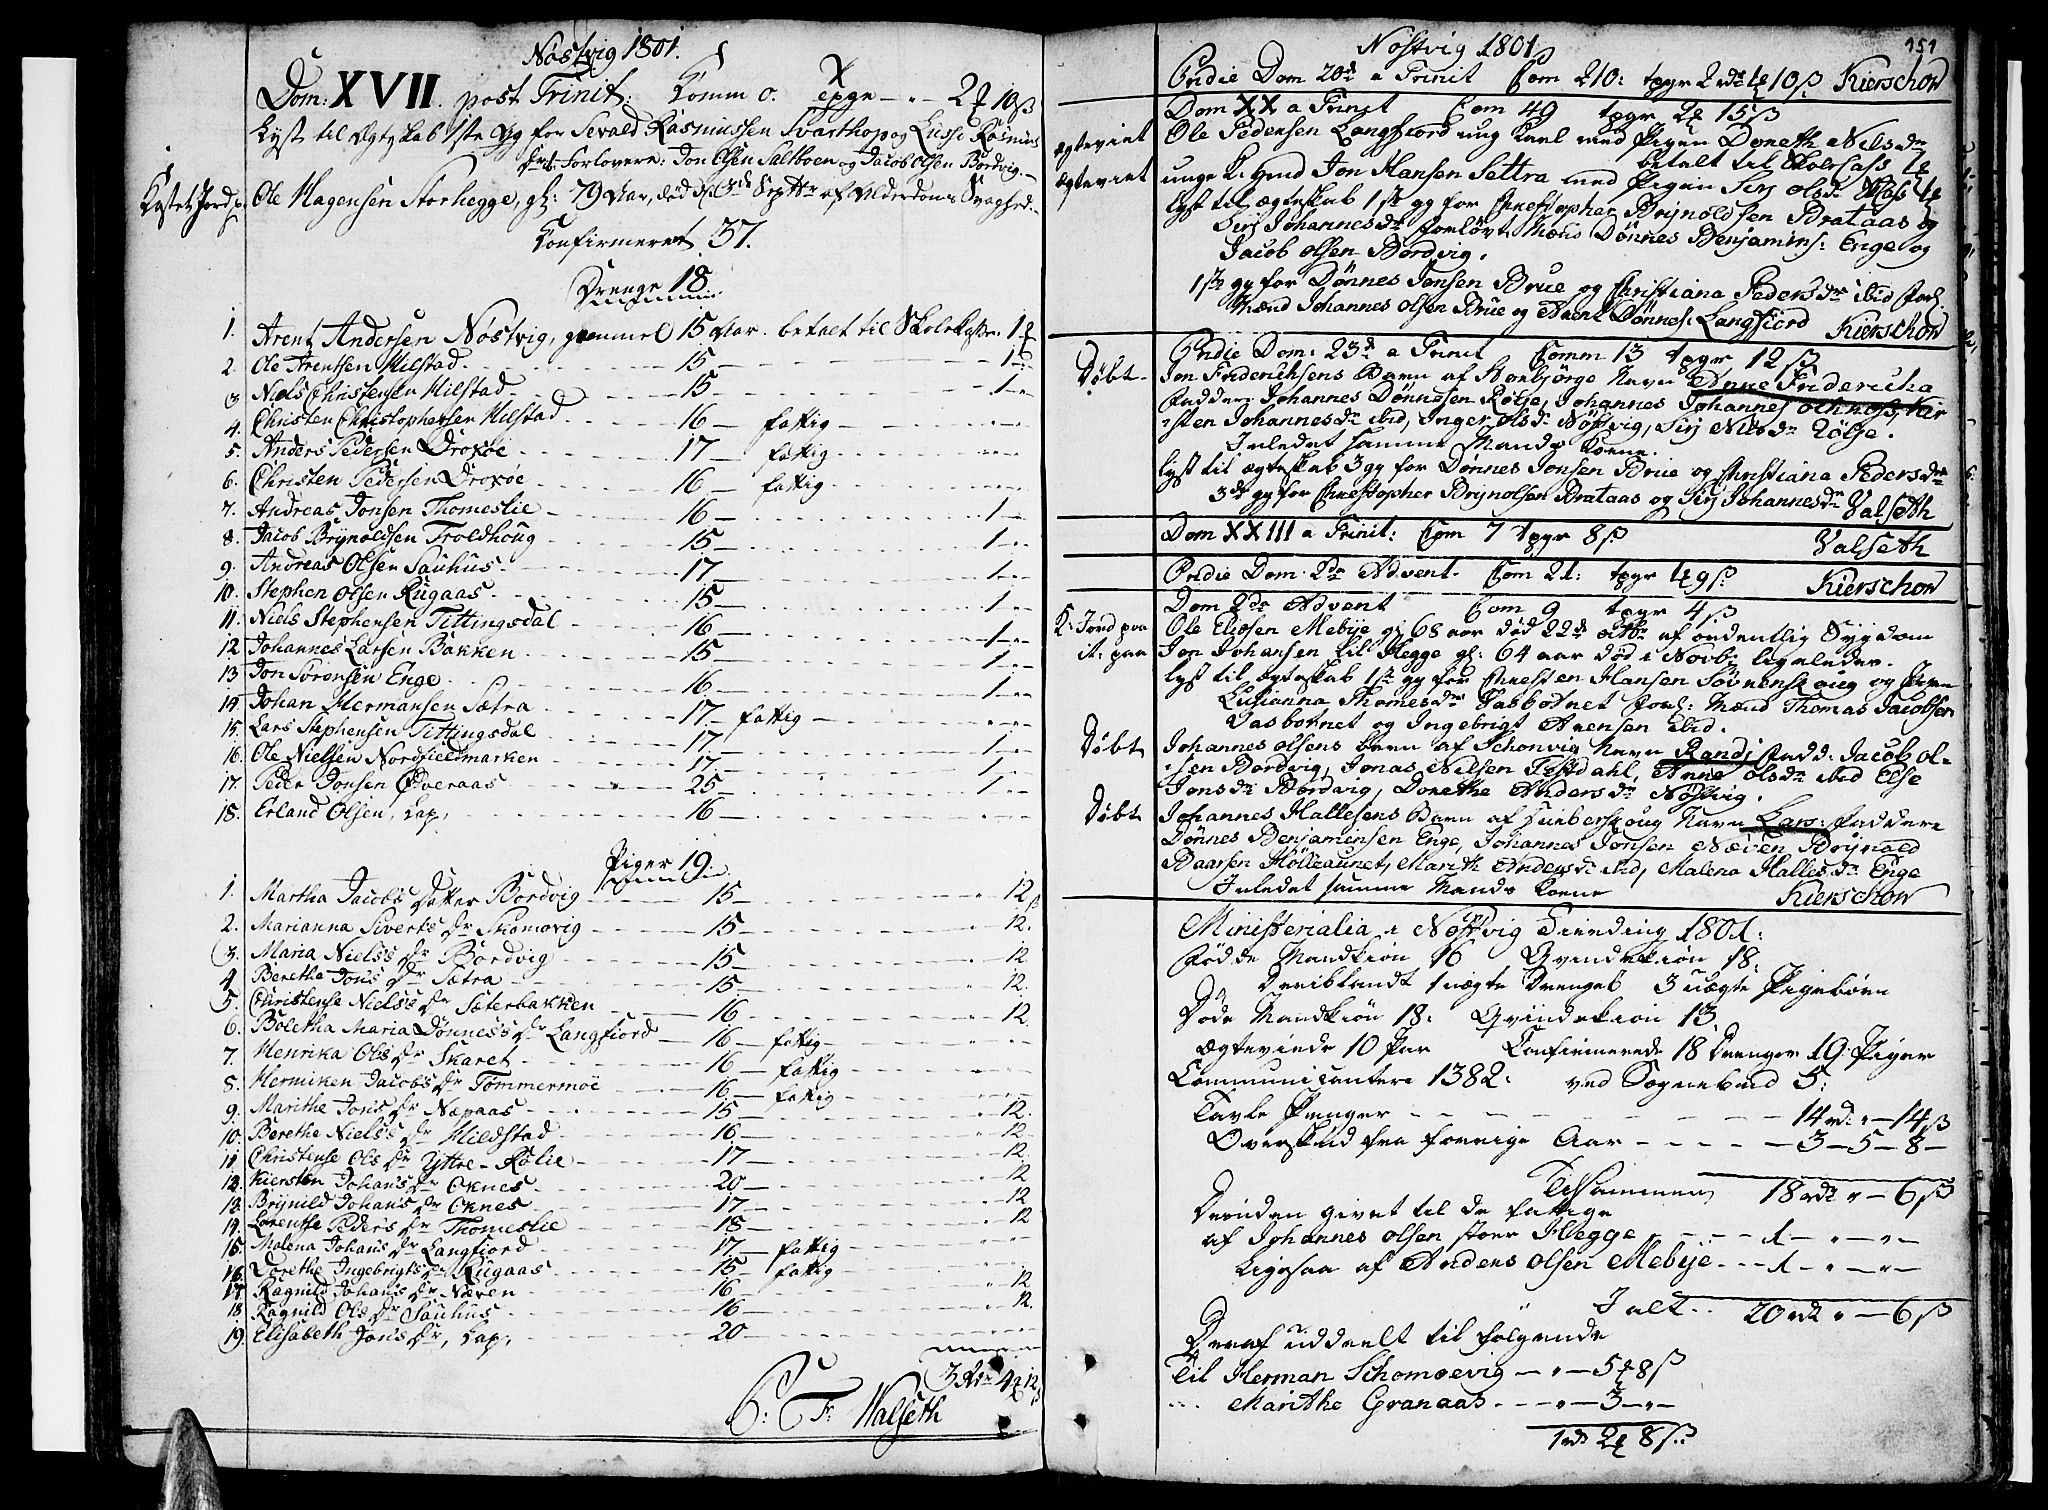 Nøstvig 1801.
Dom: XVII. post Trinit: Komm 0. tpgr — " — 2 10 ß
Lyst til Ægteskab 1ste Gg for Sevald Rasmussen Svarthop og Lusse Rasmus
Forlovere: Jon Olsen Saltboen og Jacob Olsen Bordvig.
Kastet Jord p. Ole Hagensen Storhegge, gl: 79 Aar, død Septbr af Alderdoms Svaghed.
Konfirmeret 37.
Drenge 18.
1. Arent Andersen Nøstvig, gammel 15 Aar. betalt til Skolekassen 1
2. Ole Arentsen Hilstad 15 — 1
3. Niels Christensen Hilstad 15 — 1
4. Christen Christophersen Hilstad 16 — fattig
5. Anders Pedersen Droxøe 17 — fattig
6. Christen Pedersen Droxøe 16 — fattig
7. Andreas Jonsen Thomeslie 16 — 1
8. Jacob Brynoldsen Troldhoug 15 — 1
9. Andreas Olsen Sauhus 17 — 1
10. Stephen Olsen Rugaas 15 — 1
11. Niels Stephensen Tittingsdal 16 — 1
12. Johannes Larsen Bakken 15 — 1
13. Jon Sørensen Enge 16 — 1
14. Johan Hermansen Sætra 17 — fattig
15. Lars Stephensen Tittingsdal 17 — 1
16. Ole Nielsen Nordfieldmarken 17 — 1
17. Peder Jonsen Øveraas 25 — 1
18. Erland Olsen, Lap, 16
Piger 19.
1. Martha Jacobs Datter Bordvig 15 — 12 ß
2. Marianna Siverts Dr Skomovig 15 — 12.
3. Maria Niels's Dr Bordvig 15 — 12
4. Berethe Jons Dr Sætra 15 — 12.
5. Christense Niels's Dr Sæterbakken 16 — 12
6. Boletha Maria Dønness's Dr Langfiord 16 — fattig
7. Henrika Ols Dr Skaret 16 — fattig
8. Herniken Jacobs Dr Tømmermoe 16 — fattig
9. Marithe Jons Dr Næpaas 15 — 12.
10. Berethe Niels's Dr Hildstad 16 — 12
11. Christense Ols Dr Yttre-Rølie 17 — 12
12. Kiersten Johan's Dr Oknes 20 — 12
13. Brynild Johan's Dr Oknes 17 — 12
14. Lorentse Peders Dr Thomeslie 18 — 12
15. Malena Johan's Dr Langfiord 17 — fattig
16. Dorethe Ingebrigts Dr Rugaas 15 — fattig
17. Ragnild Johan's Dr Næven 16 — 12
18. Ragnild Ols Dr Sauhus 16 — 12.
19. Elisabeth Jons Dr, Lap, 20
3 Rdr 4 12 ß
C: F: Walseth
Nøstvig 1801
151
Pridie Dom 20de a Trinit Com 210: tpgr 2 rdr 10 ß Kierschow
Dom XX a Trinit Com 49 tpgr 2 15 ß
ægteviet Ole Pedersen Langfiord ung Karl med Pigen Doreth Nilsdr
betalt til Skolecass
ægteviet unge K. Knud Jon Hansen Settra med Pigen Siri olsdr
lyst til ægteskab 1ste gg for Christopher Brynoldsen Brataas og
Siri Johannesdr forlov: Mænd Dønnes Benjamins: Enge og
Jacob olsen Bordvig.
1ste gg for Dønnes Jonsen Brue og Christiana Pedersdr ibid Forl:
Mænd Johannes olsen Brue og Arent Dønnes: Langfiord Kierschow
Pridie Dom: 23de a Trinit Comm 13 tpgr 12 ß
Døbt Jon Friderichsens Barn af Navn Anne Fridericha
Faddere Johannes Dønnesen Rølje, Johannes Johannes Kir
sten Johannesdr ibid, Inger olsdr Nøstvig, Siri Nilsdr Rølje.
Inledet samme Mands Kone.
lyst til ægteskab 3 gg for Dønnes Jonsen Brue og Christiana Pedersdr
3de gg for Christopher Brynolsen Brataas og Siri Johannesdr Valseth
Dom XXIII a Trinit: Com 7 tpgr 8 ß Valseth
Pridie Dom. 2dr Advent. Com 21: tpgr 1 9 ß: Kierschow
Dom 2dr Advent Com 9 tpgr 4 ß
K: Jord paa Ole Eliesen Mebije gl 68 aar død 22de octbr af ordentlig Sygdom
it: paa Jon Johansen lil Hegge gl: 64 aar død i Novbr ligeledes.
lyst til ægteskab 1ste gg for Christen Hansen og Pigen
Lusianna Thomesdr Vasbotnet Forl: Mænd Thomas Jacobsen
Vasbotnet og Ingebrigt Arensen ibid.
Døbt Johannes olsens barn af Schonvig Navn Randi Fadd: Jacob ol-
sen Bordvig, Jonas Nilsen Tistdahl, Anne olsdr ibid Else
Jonsdr Bordvig, Dorethe Andersdr Nøstvig.
Døbt Johannes Hallesens Barn af Navn Lars: Faddere
Dønnes Benjaminsen Enge, Johannes Jonsen Næven Brynold
Baarsen Mølleaunet, Marith Andersdr ibid, Malena Hallesdr Enge
Inledet samme Mands Kone Kierschow
Ministerialia i Nøstvig Tiending 1801:
Fødde Mandkiøn 16 Qvindekiøn 18.
Deriblandt 1 uægte Drengeb 3 uægte Pigebørn
Døde Mandkiøn 18: Qvindekiøn 13
Ægteviede 10 Par Confirmerede 18 Drenge 19 Piger
Communicantere 1382: ved Sognebud 5:
Tavle Penger — 14 rd: " — 14 ß
Overskud fra forrige Aar — 3 — 5 — 8 —
Tilsammen 18 rdr " — 6 ß
Desuden givet til de fattige
af Johannes olsen stoer Hegge — 1 — " — " —
Ligesaa af Anders olsen Mebije — 1 — " — " —
I alt 20 rdr " — 6 ß
Deraf uddeelt til følgende
Til Herman Schomoevig — " — 5 8 ß
Marithe Granaas — " — 3 — " —
1 rd 2 8 ß: